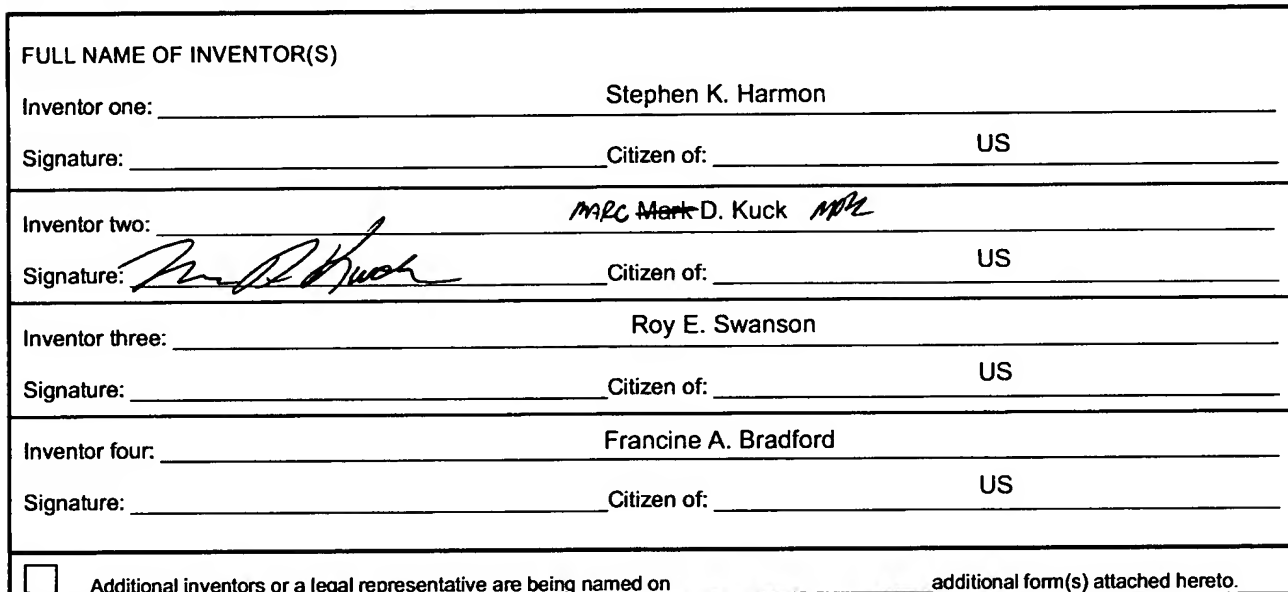 FULL NAME OF INVENTOR(S)
Inventor one: Stephen K. Harmon
Signature: Citizen of: US
Inventor two: MARC Mark D. Kuck MDK
Signature: Citizen of: US
Inventor three: Roy E. Swanson
Signature: Citizen of: US
Inventor four: Francine A. Bradford
Signature: Citizen of: US
Additional inventors or a legal representative are being named on additional form(s) attached hereto.